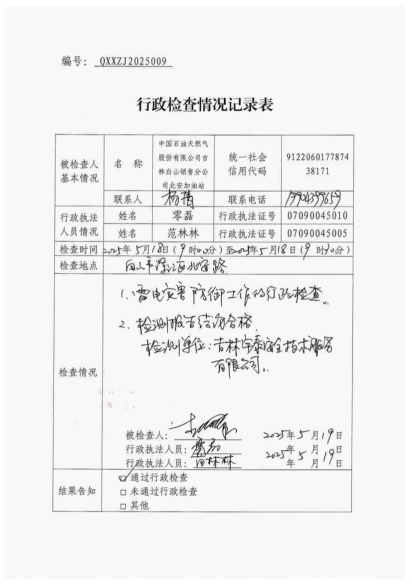 编号： QXXZJ2025009
行政检查情况记录表
被检查人基本情况
名 称
中国石油天然气
股份有限公司吉
林白山销售分公
司北安加油站
统一社会
信用代码
9122060177874
38171
联系人
杨
联系电话
行政执法
人员情况
姓名
零磊
行政执法证号
07090045010
姓名
范林林
行政执法证号
07090045005
检查时间
2025年5月18日(9时00分)至2025年5月18日(9时30分)
检查地点
白山市浑江北安路
检查情况
1、雷电灾害防御工作的行政检查。
2、检测报告结论合格，
检测单位：吉林华泰安全技术服务
有限公司。
被检查人：
2025年5月19日
行政执法人员：
2025年5月19日
行政执法人员：范林林
年 月 日
结果告知
☑ 通过行政检查
□ 未通过行政检查
□ 其他